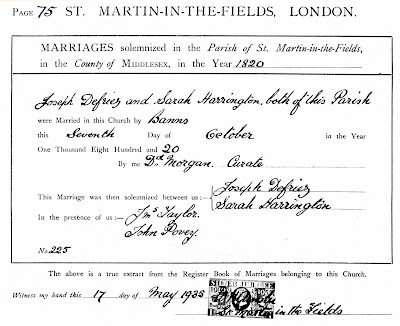 PAGE 75 ST. MARTIN-IN-THE-FIELDS, LONDON.
MARRIAGES solemnized in the Parish of St. Martin-in-the-Fields,
in the County of MIDDLESEX, in the Year 1820
Joseph Defriez and Sarah Harrington, both of this Parish
were Married in this Church by Banns
this Seventh Day of October in the Year
One Thousand Eight Hundred and 20
By me Dd. Morgan. Curate
This Marriage was then solemnized between us :— Joseph Defriez
Sarah Harrington
In the presence of us :— Jms Taylor.
John Povey.
No. 225
The above is a true extract from the Register Book of Marriages belonging to this Church.
Witness my hand this 17 day of May 1935
SILVER JUBILEE
St Martin in the Fields